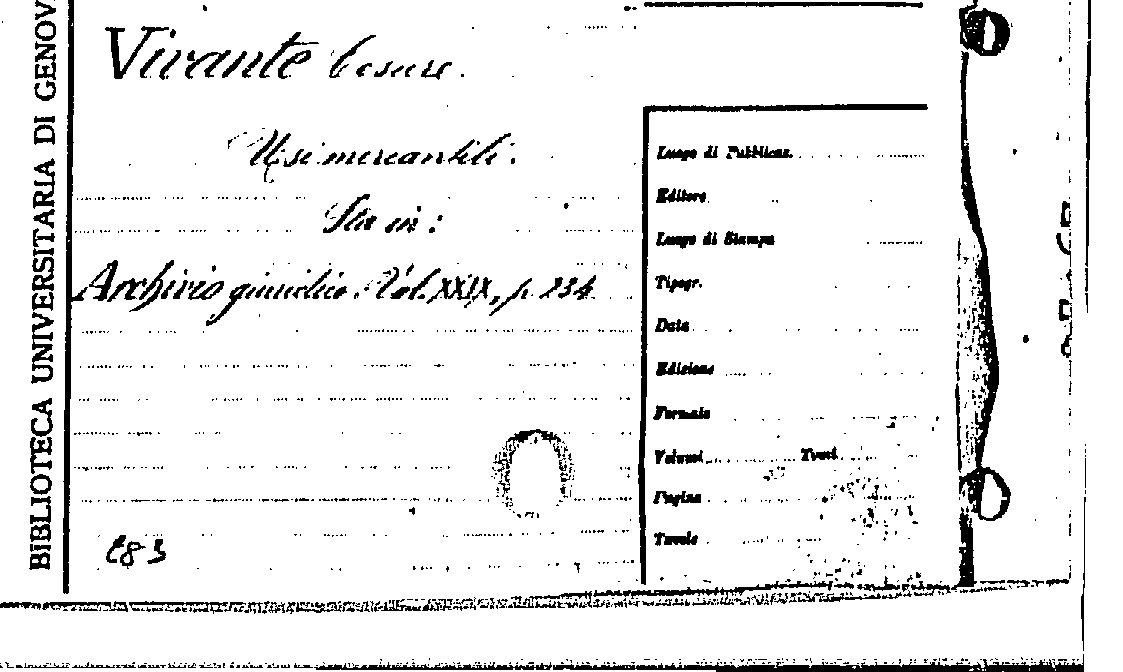 BIBLIOTECA UNIVERSITARIA DI GENOV
Vivante Cesare.
Usi mercantili.
Sta in:
Archivio giuridico. Vol. XXIX, p. 234
Luogo di Pubblicaz.
Editore
Luogo di Stampa
Tipogr.
Data
Edizione
Formato
Volumi Tomi
Pagine
Tavole